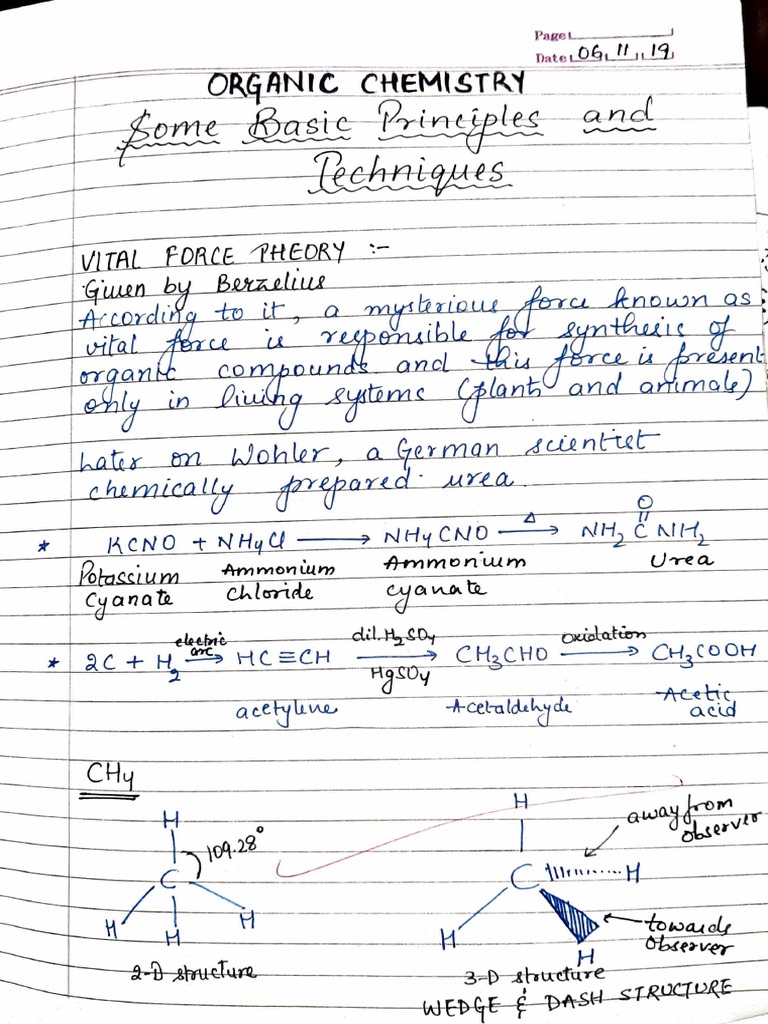 Page
Date 06 11 19
ORGANIC CHEMISTRY
Some Basic Principles and
Techniques
VITAL FORCE THEORY :-
Given by Berzelius
According to it, a mysterious force known as
vital force is responsible for synthesis of
organic compounds and this force is present
only in living systems (plants and animals)
Later on Wohler, a German scientist
chemically prepared urea.
* KCNO + NH4Cl → NH4CNO →Δ NH2 C NH2
O
Potassium Ammonium Ammonium Urea
Cyanate Chloride cyanate
* 2C + H2 →electric arc HC≡CH →dil. H2SO4 HgSO4 CH3CHO →oxidation CH3COOH
acetylene Acetaldehyde Acetic
acid
CH4
H
109.28°
C
H H H
2-D structure
H
away from
observer
C H
H
towards
observer
H
3-D structure
WEDGE & DASH STRUCTURE